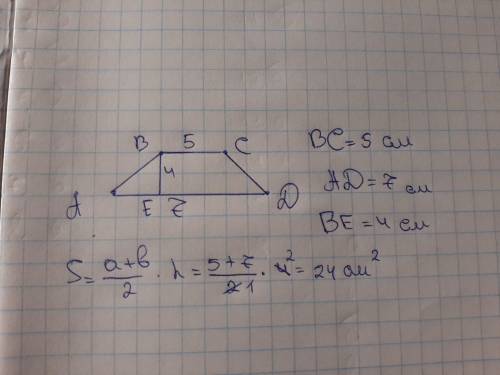 B 5 C
4
A E 7 D
BC = 5 см
AD = 7 см
BE = 4 см
S = a+b/2 · h = 5+7/2 1 · 4 2 = 24 см²